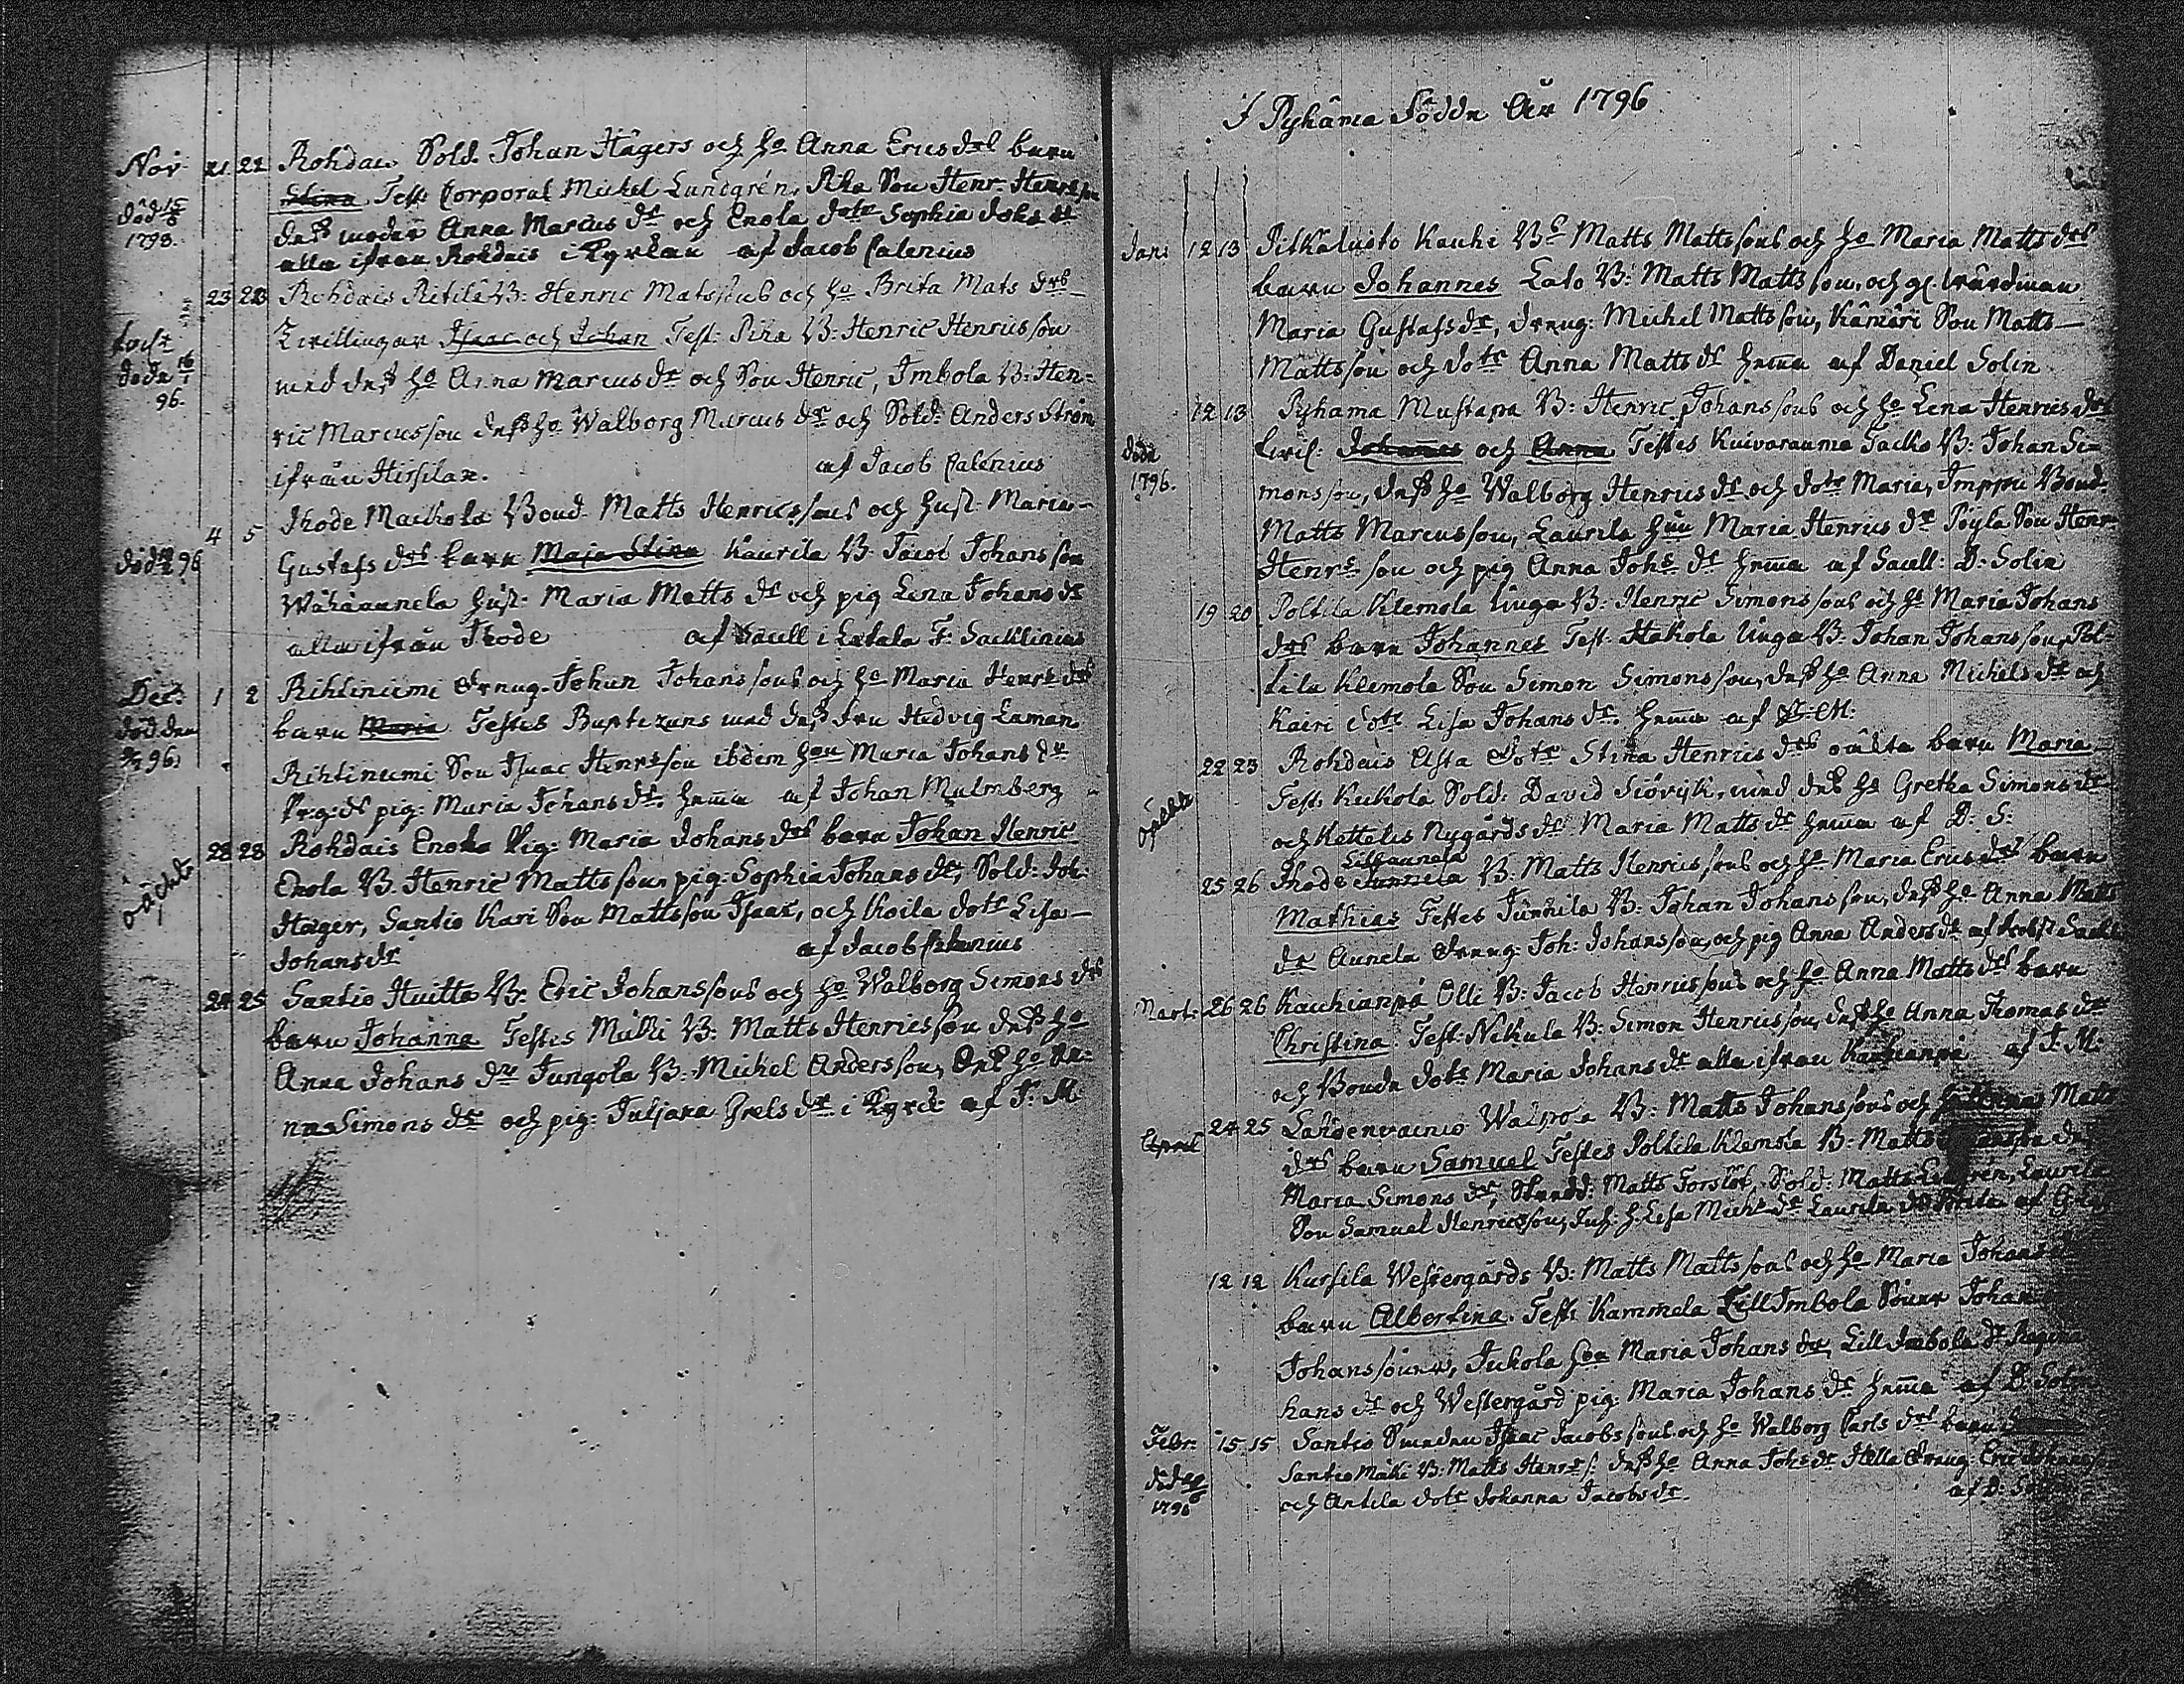 Nov: 21 22 Rohdais Sold. Johan Hägers och ho Anna Erics drs barn
död 15/8 1798. Stina Test: Corporal Michel Lundgrén, Riha Son Henr. Henrsson
dess moder Anna Marcus dr och Enola dotr Sophia Johs dr
alla ifrån Rohdais i Kyrkan af Jacob Calenius
23 23 Rohdais Ritilä B: Henric Matssons och ho Brita Mats drs
Tvillingar Isaac och Johan Test: Riha B: Henric Henricsson
döde 16/1 96. med dess ho Anna Marcus dr och Son Henric, Imbola B: Hen-
ric Marcusson dess ho Walborg Marcus dr och Sold: Anders Ström
ifrån Hirsilax. af Jacob Calenius
4 5 Ihode Maihola Bond. Matts Henricssons och hust: Maria
död 96 Gustafs drs barn Maja Stina Kaurila B. Jacob Johansson
Wähäaunela hust: Maria Matts dr och pig Lena Johans dr
alla ifrån Ihode af Sacell i Letala F: Sacklinius
Dec: 1 2 Rihtniemi Dräng Johan Johanssons och ho Maria Henrs drs
död den 96 barn Maria Testes Baptizans med dess fru Hedvig Laman
Rihtniemi Son Isaac Henrsson ibdem hon Maria Johans dr
pig: Maria Johans dr. hema af Johan Malmberg
28 28 Rohdais Enola Pig: Maria Johans drs barn Johan Henric
oächta Enola B. Henric Mattsson, pig: Sophia Johans dr, Sold: Joh:
Häger, Santio Kari Son Mattsson Isaac, och Koila dotr Lisa
Johans dr af Jacob Calenius
24 25 Santio Huitto B: Eric Johanssons och ho Walborg Simons drs
barn Johanna Testes Mälki B: Matts Henricsson dess ho
Anna Johans dr Jungola B: Michel Andersson, dess ho An-
na Simons dr och pig: Juliana Grels dr i Kyrck: af J: M:
I Pyhäma Födde År 1796
Jan: 12 13 Pitkäluoto Kauhi B: Matts Mattssons och ho Maria Matts drs
barn Johannes Lato B: Matts Mattsson, och gl. wärdinnan
Maria Gustafs dr, dreng: Michel Mattsson, Kämäri Son Matts
Mattsson och dotr Anna Matts dr hema af Daniel Solin
12 13 Pyhama Mustapa B: Henric Johanssons och ho Lena Henrics drs
döde 1796. tvil: Johannes och Anna Testes Kuivarauma Jacko B: Johan Si-
monsson, dess ho Walborg Henrics dr och dotr Maria, Imppu Bond.
Matts Marcusson, Laurila hon Maria Henrics dr Pöyla Son Henr
Henrs son och pig Anna Johs dr hema af Sacell: D: Solin
19 20 Polttila Klemola Unga B: Henric Simonssons och ho Maria Johans
drs barn Johannes Test: Hakola Unga B: Johan Johansson, Pol-
tila Klemola Son Simon Simonsson, dess ho Anna Michels dr och
Kairi dotr Lisa Johans dr. hema af J: M:
22 23 Rohdais Asta Dotr Stina Henrics drs oäckta barn Maria
oäckta Test: Kukola Sold: David Siövijk, med dess ho Gretha Simons dr
och Kettelis Nygårds dr Maria Matts dr hema af D: S:
25 26 Ihode B: Matts Henricssons och ho Maria Erics drs barn
Mathias Testes Junnila B: Johan Johansson, dess ho Anna Matts
dr Aunela Dräng: Joh: Johansson, och pig Anna Anders dr
Mart: 26 26 Kauhianpä Olli B: Jacob Henricssons och ho Anna Matts drs barn
Christina. Test: Nikula B: Simon Henricsson, dess ho Anna Thomas dr
och Bonde dotr Maria Johans dr alla ifrån Kauhianpä af J: M:
April 24 25 Lahdenvainio B: Matts Johanssons och Matts
drs barn Samuel Testes Polttila Klemola B: Matts
Maria Simons dr, Matts Forslöf, Sold: Matts Laurila
Son Samuel Henricsson, Lisa Michs dr Laurila
12 12 Kursila Westergårds B: Matts Mattssons och ho Maria Johans
barn Albertina. Test: Kammela Lill Imbola Söner Johan
Johanssöner, Juhola hon Maria Johans dr, Lill Imbola dr
hans dr och Westergård pig: Maria Johans dr hema af D: Solin
Febr: 15 15 Santio Smeden Isaac Jacobssons och ho Walborg Carls drs barn
död 1796 Santio Mälki B: Matts Henrs s. dess ho Anna Johs dr Hella Dräng: Eric Johans
och Antila dotr Johanna Jacobs dr. af D: Solin